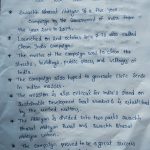 * Swachh Bharat Abhiyan is a five year
Campaign by the Government of India from
the year 2014 to 2019.
* Launched on 2nd october 2014 it is also called
Clean India Campaign.
* The motto of the campaign was to clean the
streets, buildings, public places and villages of
India.
* The Campaign also hoped to generate civic sense
in Indian masses.
* The mission is also critical for India's stand on
Sustainable Development Goal standard is established
by the United Nations.
* The Mission is divided into two parts Swachh
Bharat Mission Rural and Swachh Bharat
Mission Urban.
* The Campaign proved to be a great success